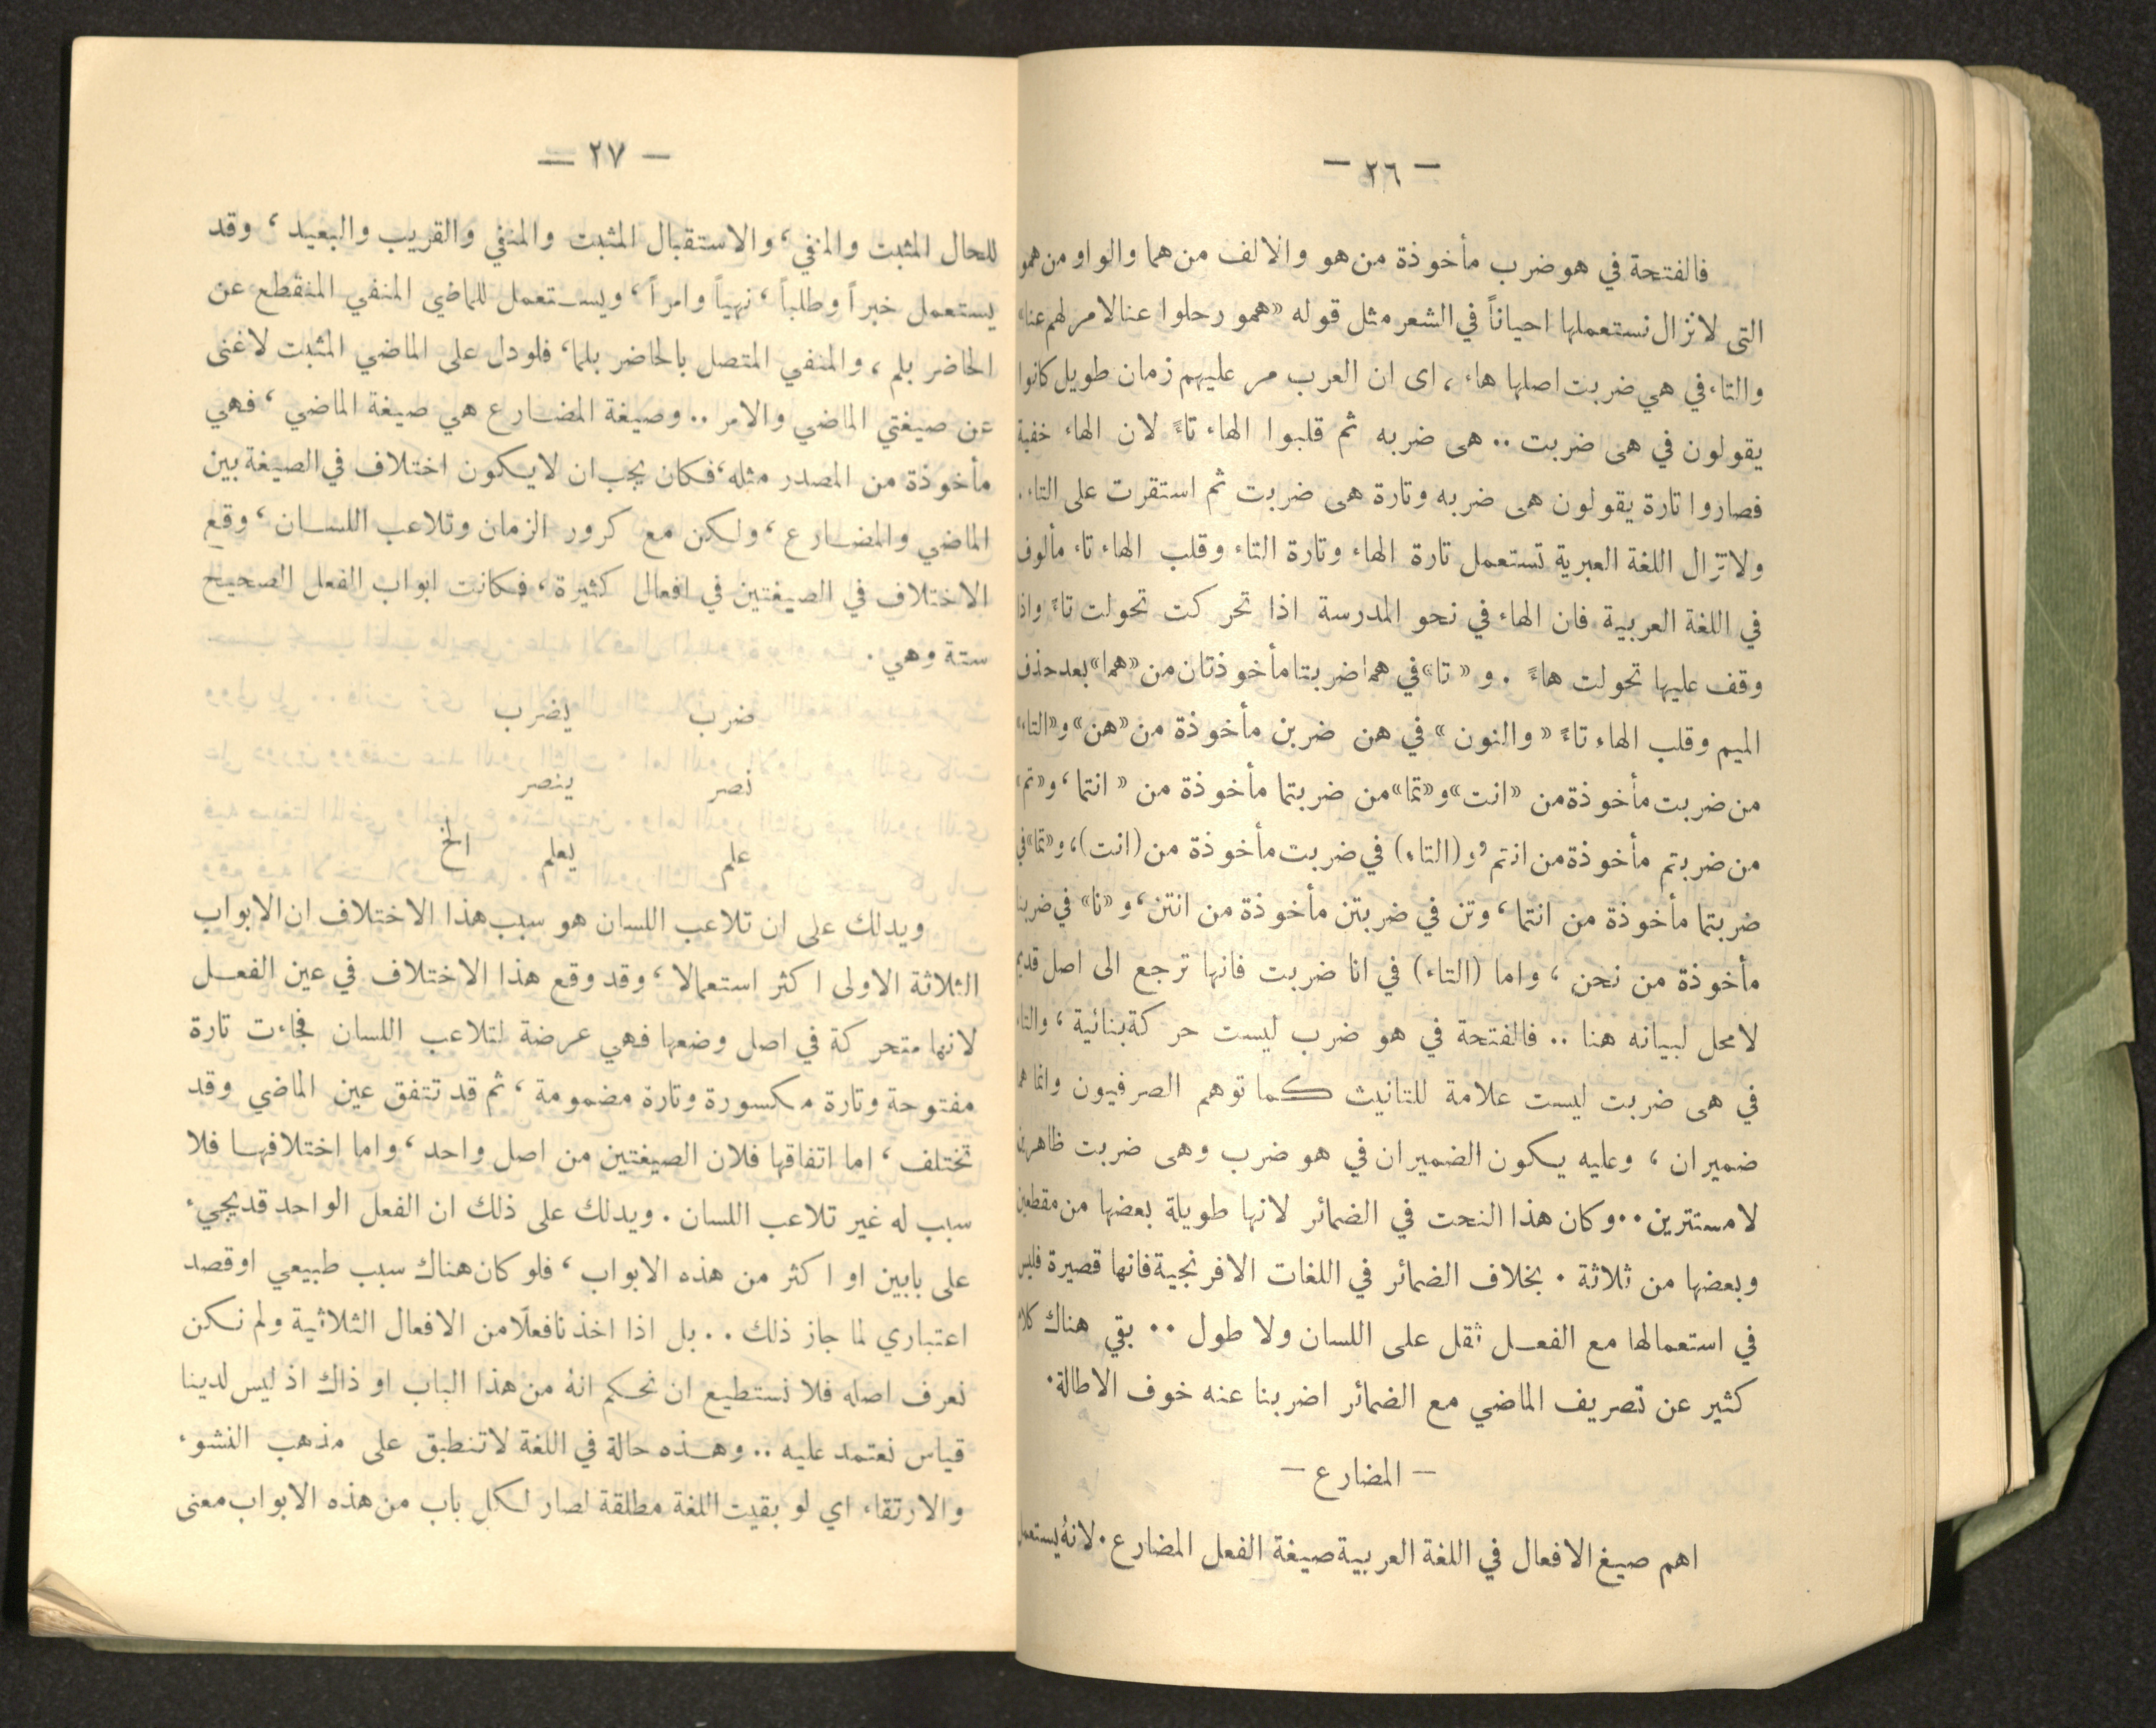 — ٢٦ —
فالفتحة في هو ضرب مأخوذة من هو والالف من هما والواو من همو
التى لا نزال نستعملها احياناً في الشعر مثل قوله «همو رحلوا عنا لامر لهم عنا»
والتاء في هي ضربت اصلها هاء ، اى ان العرب مر عليهم زمان طويل كانوا
يقولون في هى ضربت .. هى ضربه ثم قلبوا الهاء تاءً لان الهاء خفية
فصاروا تارة يقولون هى ضربه وتارة هى ضربت ثم استقرت على التاء.
ولا تزال اللغة العبرية تستعمل تارة الهاء وتارة التاء وقلب الهاء تاء مألوف
في اللغة العربية فان الهاء في نحو المدرسة اذا تحركت تحولت تاءً واذا
وقف عليها تحولت هاءً . و « تا » في هما ضربتا مأخوذتان من «هما» بعد حذف
الميم وقلب الهاء تاءً « والنون » في هن ضربن مأخوذة من «هن» و«التاء»
من ضربت مأخوذة من «انت» و«تما» من ضربتما مأخوذة من « انتما ، و«تم»
من ضربتم مأخوذة من انتم و(التاء) في ضربت مأخوذة من (انت) ، و«تما» في
ضربتما مأخوذة من انتما ، وتن في ضربتن مأخوذة من انتن ، و «نا» في ضربنا
مأخوذة من نحن ، واما (التاء) في انا ضربت فانها ترجع الى اصل قديم
لا محل لبيانه هنا .. فالفتحة في هو ضرب ليست حركة بنائية ، والتاء
في هى ضربت ليست علامة للتانيث كما توهم الصرفيون وانما هما
ضميران ، وعليه يكون الضميران في هو ضرب وهى ضربت ظاهرين
لا مستترين .. وكان هذا النحت في الضمائر لانها طويلة بعضها من مقطعين
وبعضها من ثلاثة . بخلاف الضمائر في اللغات الافرنجية فانها قصيرة فليس
في استعمالها مع الفعل ثقل على اللسان ولا طول .. بقي هناك كلام
كثير عن تصريف الماضي مع الضمائر اضربنا عنه خوف الاطالة.
— المضارع —
اهم صيغ الافعال في اللغة العربية صيغة الفعل المضارع . لانهُ يستعمل
— ٢٧ —
للحال المثبت والمنفي ، والاستقبال المثبت والمنفي والقريب والبعيد ، وقد
يستعمل خبراً وطلباً ، نهياً وامراً ، ويستعمل للماضي المنفي المنقطع عن
الحاضر بلم ، والمنفي المتصل بالحاضر بلما ، فلو دل على الماضي المثبت لاغنى
عن صيغتي الماضي والامر .. وصيغة المضارع هي صيغة الماضي ، فهي
مأخوذة من المصدر مثله ، فكان يجب ان لا يكون اختلاف في الصيغة بين
الماضي والمضارع ، ولكن مع كرور الزمان وتلاعب اللسان ، وقع
الاختلاف في الصيغتين في افعال كثيرة ، فكانت ابواب الفعل الصحيح
ستة وهي .
ضرب يضرب
نصر ينصر
علم يعلم الخ
ويدلك على ان تلاعب اللسان هو سبب هذا الاختلاف ان الابواب
الثلاثة الاولى اكثر استعمالا ، وقد وقع هذا الاختلاف في عين الفعل
لانها متحركة في اصل وضعها فهي عرضة لتلاعب اللسان فجاءت تارة
مفتوحة وتارة مكسورة وتارة مضمومة ، ثم قد تتفق عين الماضي وقد
تختلف ، اما اتفاقها فلان الصيغتين من اصل واحد ، واما اختلافها فلا
سبب له غير تلاعب اللسان . ويدلك على ذلك ان الفعل الواحد قد يجيء
على بابين او اكثر من هذه الابواب ، فلو كان هناك سبب طبيعي او قصد
اعتباري لما جاز ذلك .. بل اذا اخذنا فعلاً من الافعال الثلاثية ولم نكن
نعرف اصله فلا نستطيع ان نحكم انهُ من هذا الباب او ذاك اذ ليس لدينا
قياس نعتمد عليه .. وهذه حالة في اللغة لا تنطبق على مذهب النشوء
والارتقاء اي لو بقيت اللغة مطلقة لصار لكل باب من هذه الابواب معنى